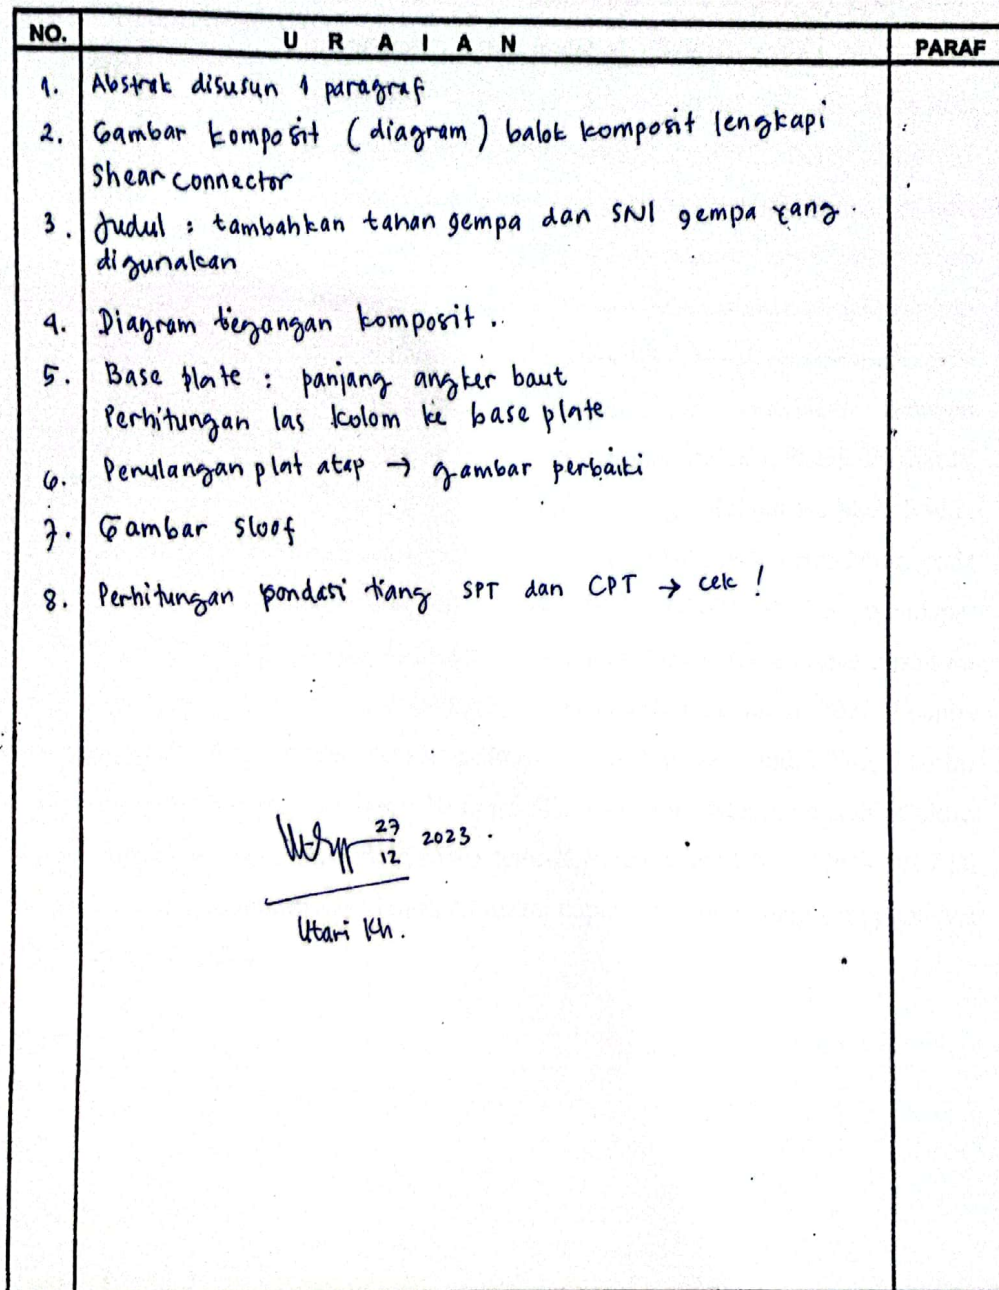 NO. U R A I A N PARAF
1. Abstrak disusun 1 paragraf
2. Gambar komposit (diagram) balok komposit lengkapi
Shear connector
3. Judul : tambahkan tahan gempa dan SNI gempa yang
digunakan
4. Diagram tegangan komposit.
5. Base plate : panjang angker baut
Perhitungan las kolom ke base plate
6. Penulangan plat atap → gambar perbaiki
7. Gambar sloof
8. Perhitungan pondasi tiang SPT dan CPT → cek !
27/12 2023.
Utari Kh.